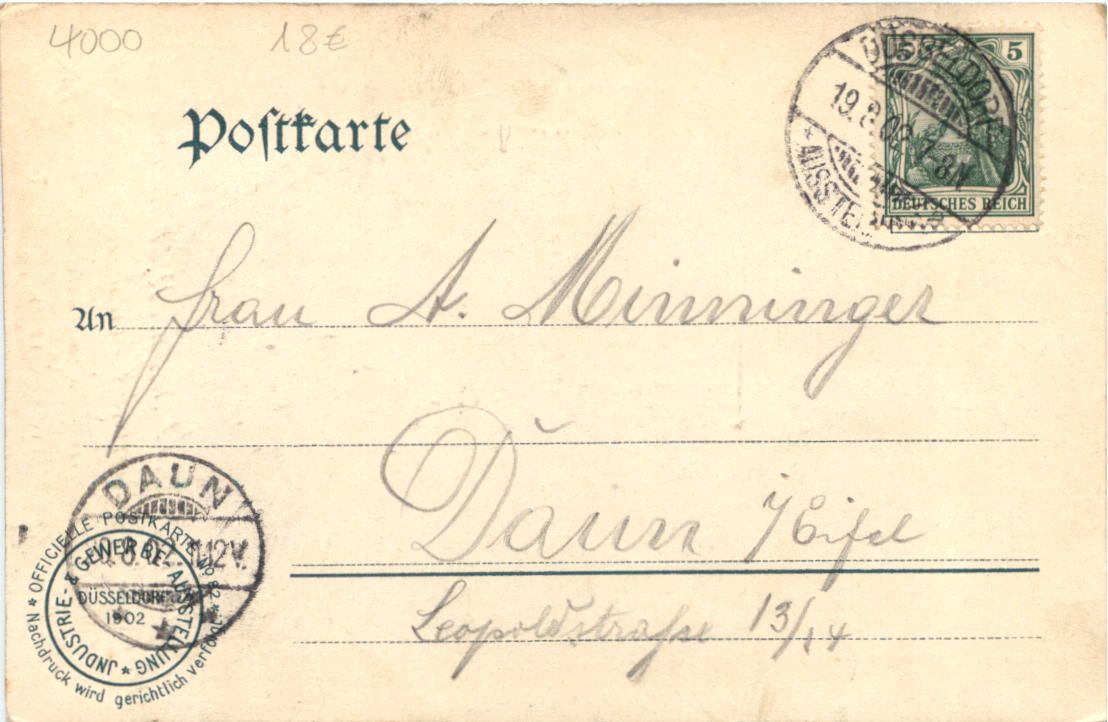 4000 18€
Postkarte
5 5
DEUTSCHES REICH
DÜSSELDORF
19.8.02. 7-8N
* AUSSTELLUNG
An Frau A. Minninger
Daun /Eifel
Leopoldstraße 13/14
DAUN
12V.
* OFFICIELLE POSTKARTE No 82 * Nachdruck wird gerichtlich verfolgt
JNDUSTRIE- & GEWERBE-AUSSTELLUNG *
DÜSSELDORF
1902